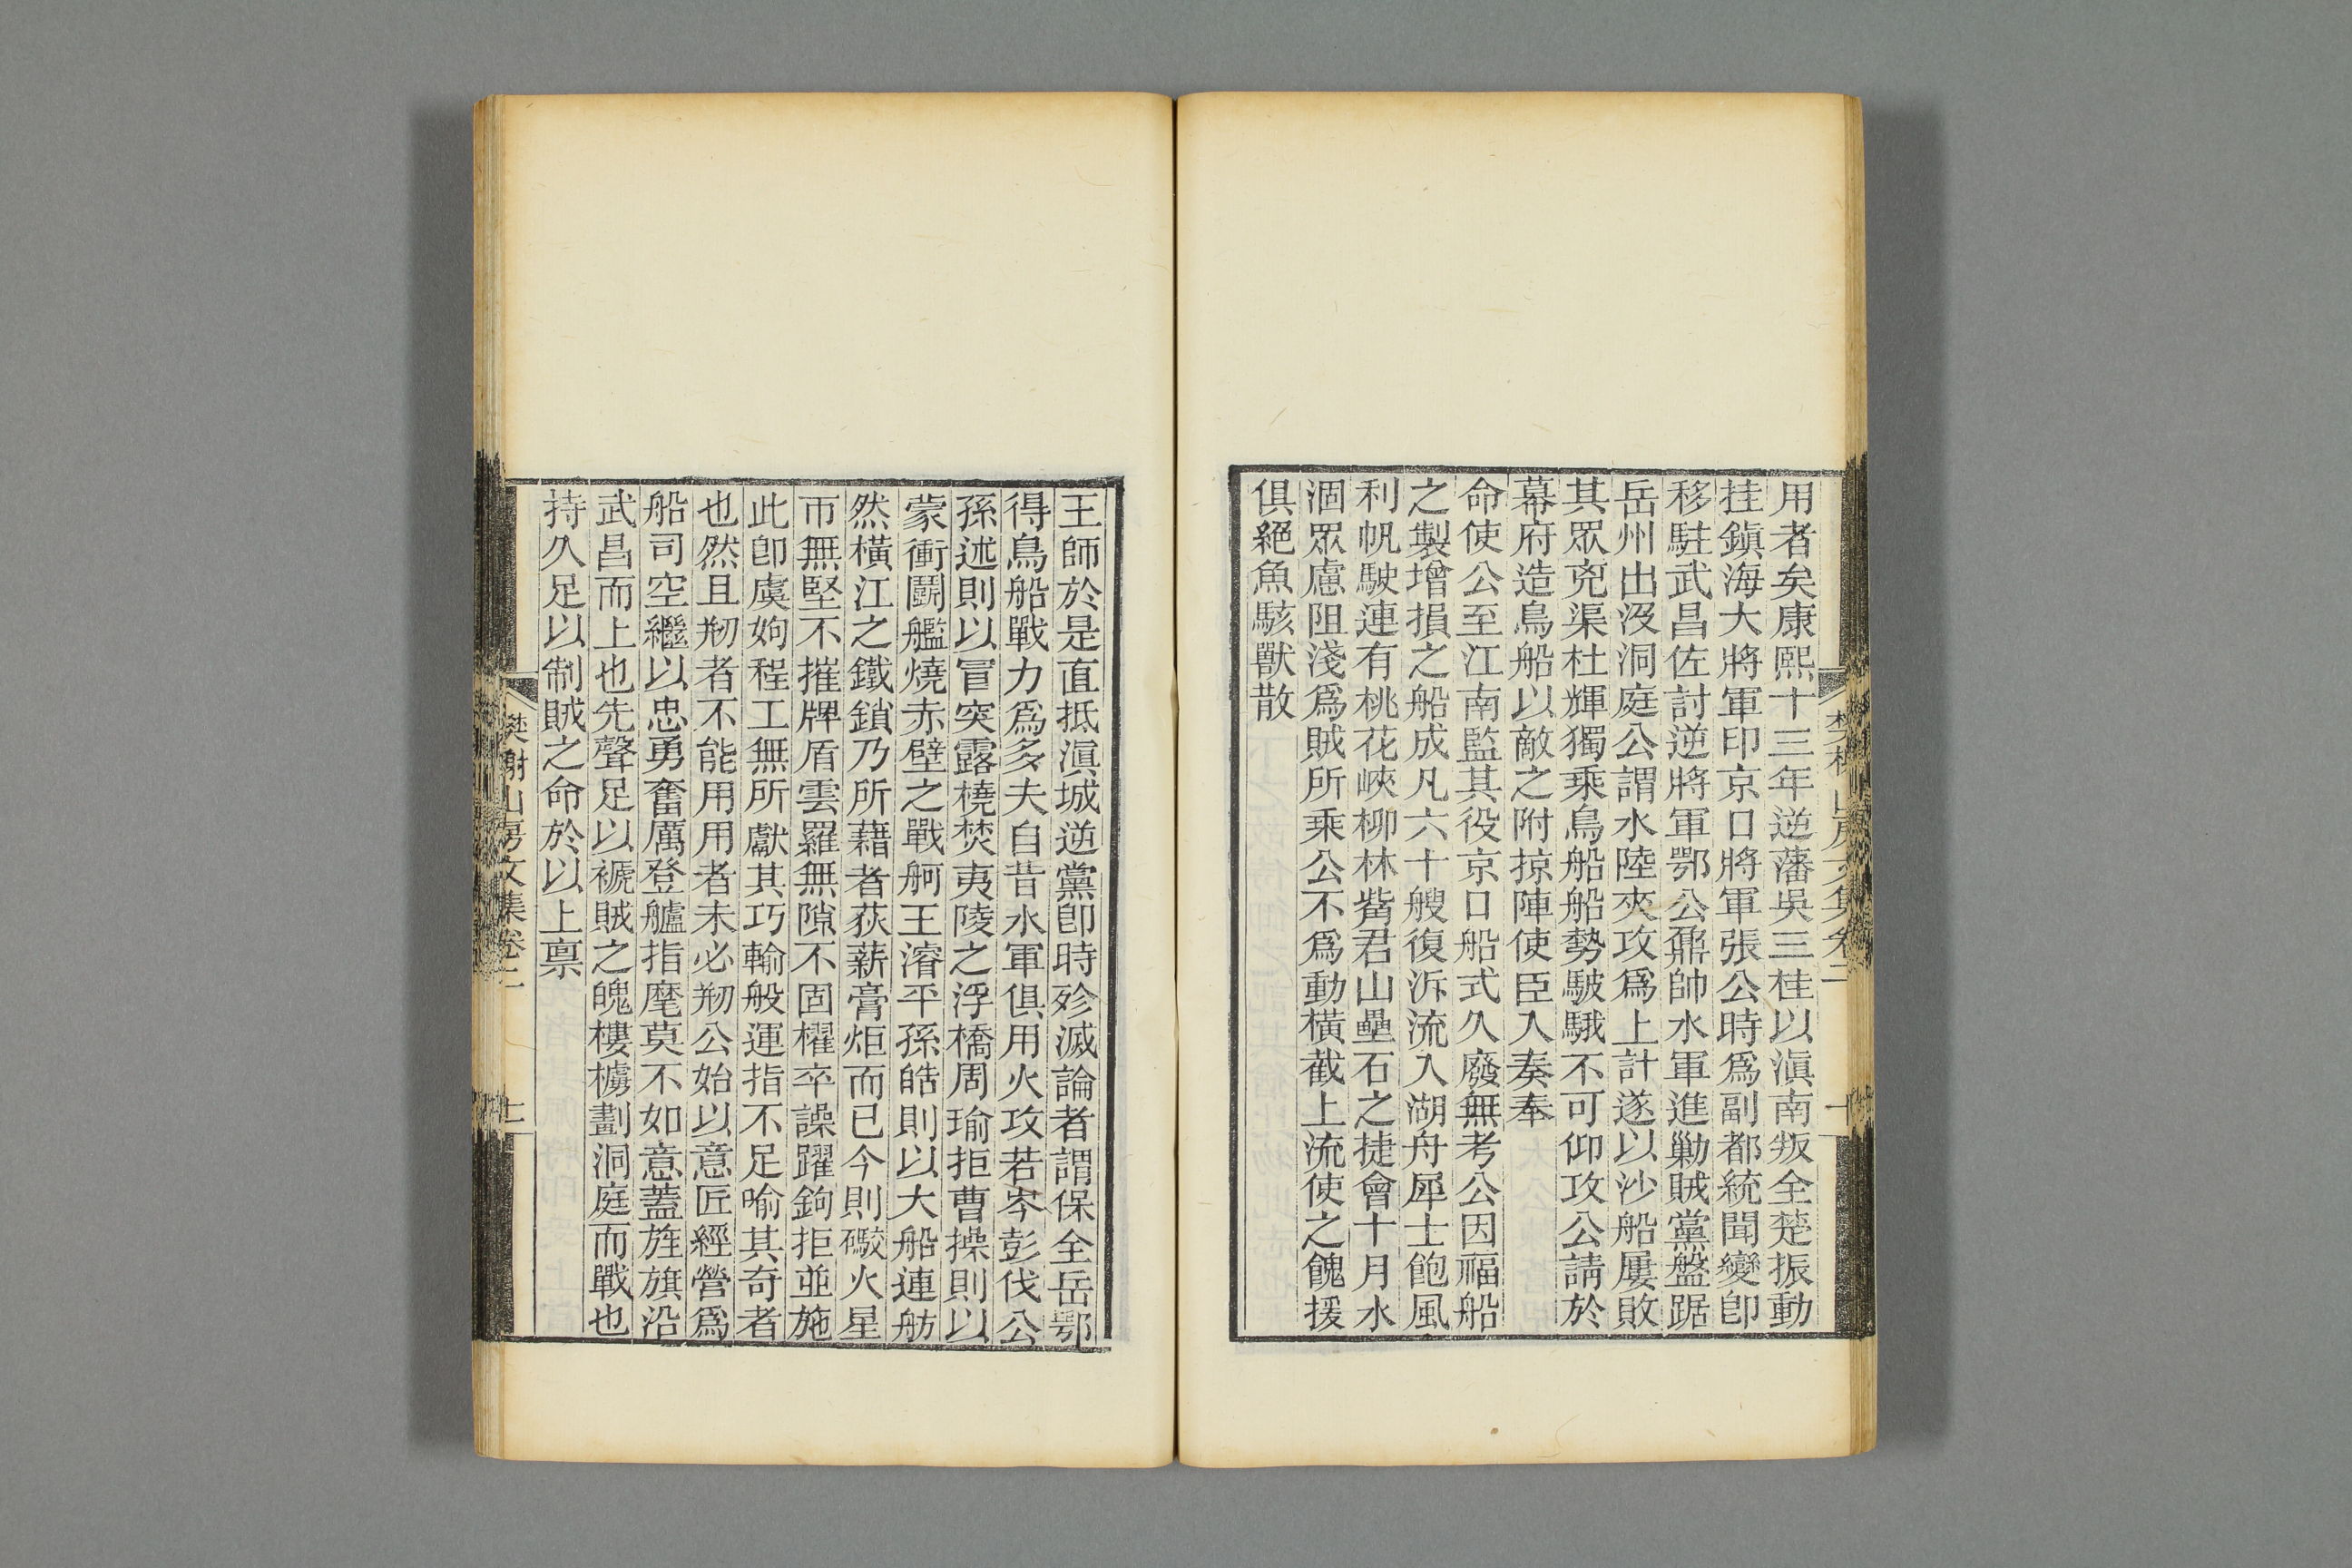 用者矣康熙十三年逆藩吳三桂以滇南叛全楚振動
挂鎮海大將軍印京口將軍張公時爲副都統聞變卽
移駐武昌佐討逆將軍鄂公鼐帥水軍進勦賊黨盤踞
岳州出沒洞庭公謂水陸夾攻爲上計遂以沙船屢敗
其眾兇渠杜輝獨乘鳥船船勢駊騀不可仰攻公請於
幕府造鳥船以敵之附掠陣使臣入奏奉
命使公至江南監其役京口船式久廢無考公因福船
之製增損之船成凡六十艘復泝流入湖舟犀士飽風
利帆駛連有桃花峽柳林觜君山壘石之捷會十月水
涸眾慮阻淺爲賊所乘公不爲動橫截上流使之餽援
俱絕魚駭獸散
王師於是直抵滇城逆黨卽時殄滅論者謂保全岳鄂
得鳥船戰力爲多夫自昔水軍俱用火攻若岑彭伐公
孫述則以冒突露橈焚夷陵之浮橋周瑜拒曹操則以
蒙衝鬭艦燒赤壁之戰舸王濬平孫皓則以大船連舫
然橫江之鐵鎖乃所藉者荻薪膏炬而已今則礮火星
帀無堅不摧牌盾雲羅無隙不固櫂卒譟躍鉤拒並施
此卽虞姁程工無所獻其巧輸般運指不足喻其奇者
也然且刱者不能用用者未必刱公始以意匠經營爲
船司空繼以忠勇奮厲登艫指麾莫不如意蓋旌旗沿
武昌而上也先聲足以褫賊之魄樓櫓劃洞庭而戰也
持久足以制賊之命於以上禀
樊榭山房文集卷二